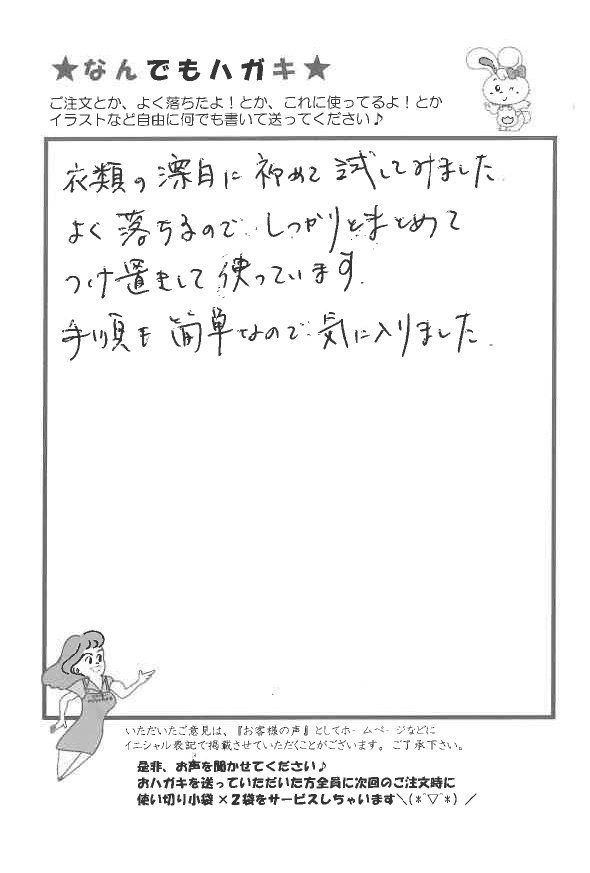 ★なんでもハガキ★
ご注文とか、よく落ちたよ!とか、これに使ってるよ!とか
イラストなど自由に何でも書いて送ってください♪
衣類の漂白に初めて試してみました.
よく落ちるので しっかりとまとめて
つけ置きして使っています.
手順も簡単なので気に入りました.
いただいたご意見は、『お客様の声』としてホームページなどに
イニシャル表記で掲載させていただくことがございます。ご了承下さい。
是非、お声を聞かせてください♪
おハガキを送っていただいた方全員に次回のご注文時に
使い切り小袋×2袋をサービスしちゃいます＼(*^▽^*)／